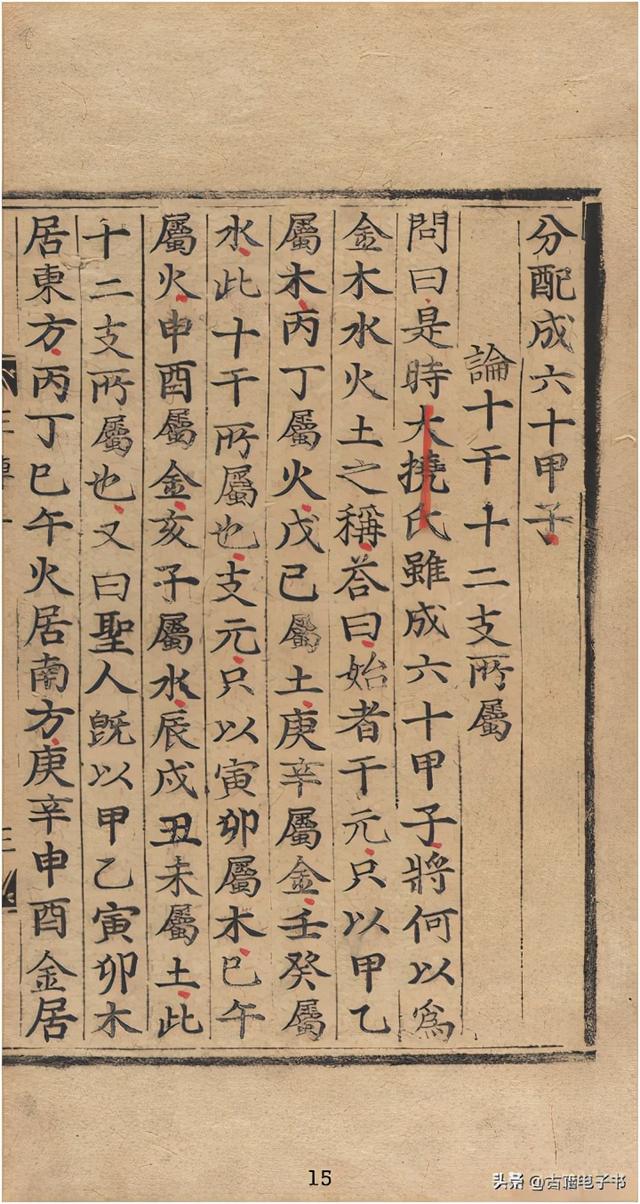 分配成六十甲子
論十干十二支所屬
問曰是時大撓氏雖成六十甲子將何以爲
金木水火土之稱荅曰始者干元只以甲乙
屬木丙丁屬火戊己屬土庚辛屬金壬癸屬
水此十干所屬也支元只以寅卯屬木巳午
屬火申酉屬金亥子屬水辰戌丑未屬土此
十二支所屬也又曰聖人旣以甲乙寅卯木
居東方丙丁巳午火居南方庚辛申酉金居
15
头条 @古籍电子书